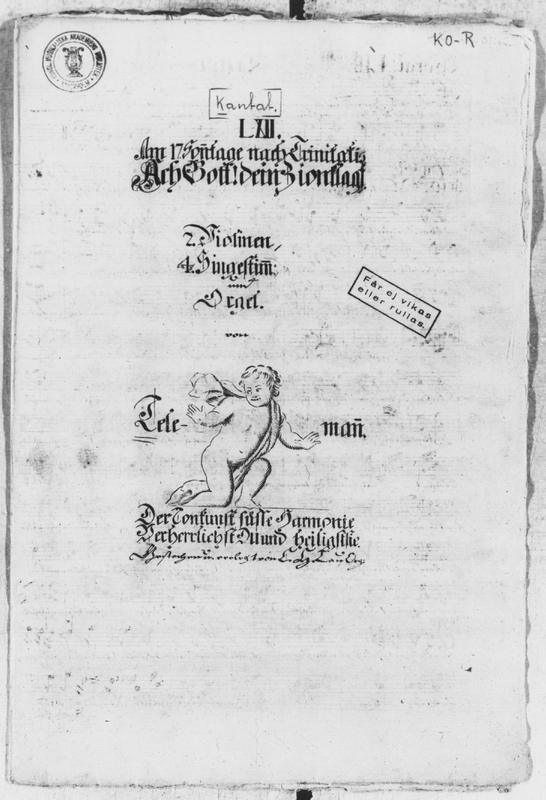 KO-R
Kantat.
LXII.
Am 17. Soñtage nach Trinitatis
Ach Gott! dein Zion klagt
2. Violinen,
4. Singestim̃:
und
Orgel.
von
Tele- mañ.
Der Tonkunst süsse Harmonie
Verherrlichst Du und heiligst sie.
von
Får ej vikas
eller rullas.